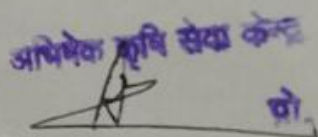 अभिषेक कृषि सेवा केन्द्र
प्रो.